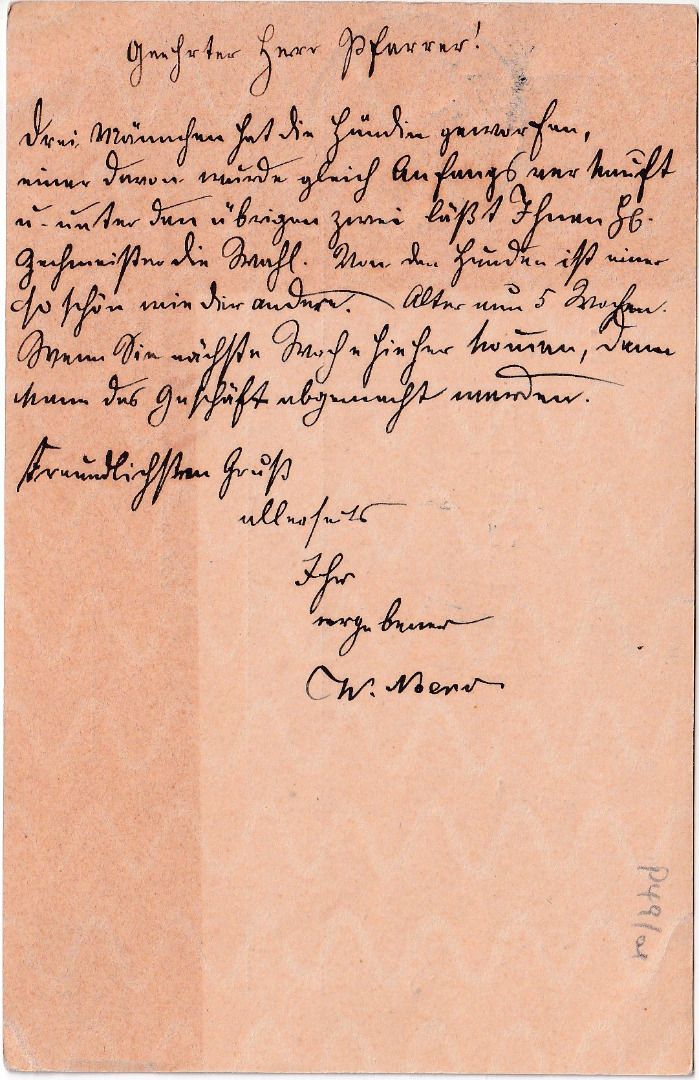 Geehrter Herr Pfarrer!
Drei Männchen hat die Hündin geworfen,
einer davon wurde gleich Anfangs verkauft
u. unter den übrigen zwei läßt Ihnen H.
Zechmeister die Wahl. Von den Hunden ist einer
so schön wie der andere. Alter nun 5 Wochen.
Wenn Sie nächste Woche hieher kommen, dann
kann das Geschäft abgemacht werden.
Freundlichsten Gruß
allerseits
Ihr
ergebener
W.
P49/01